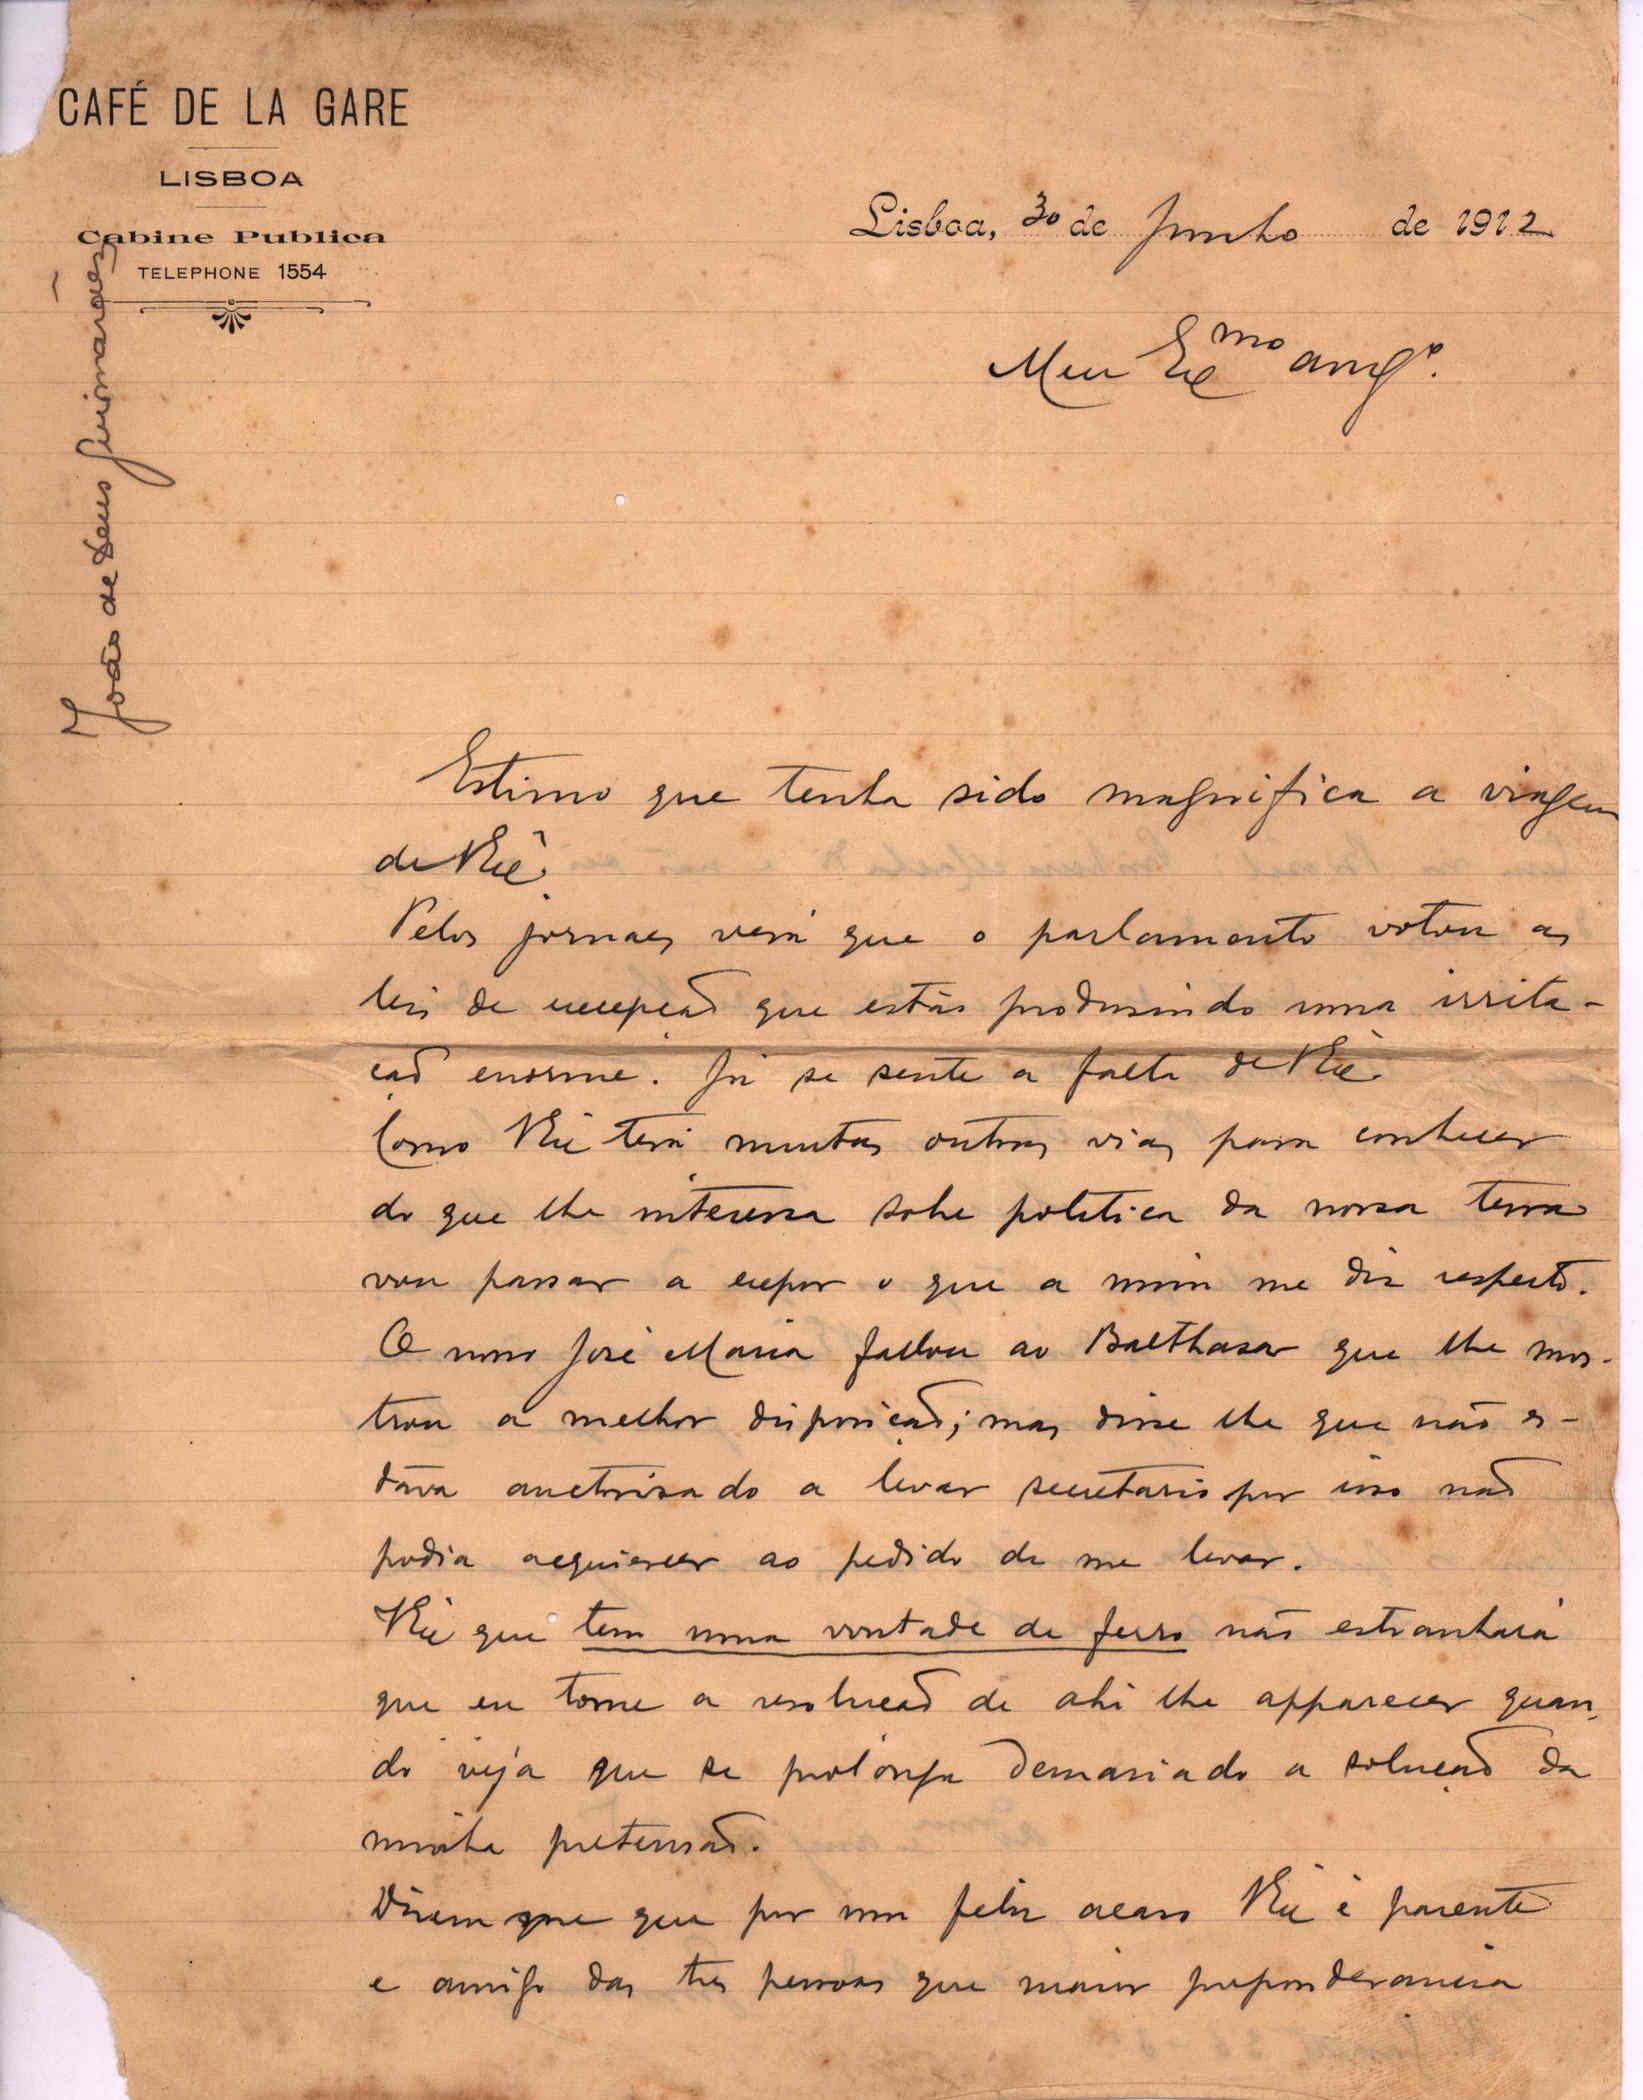 CAFÉ DE LA GARE
LISBOA
Cabine Publica
TELEPHONE 1554
João de Deus Guimarães
Lisboa, 30 de Junho de 1912
Meu Exmo amgº.
Estimo que tenha sido magnifica a viagem
de V Exê.
Pelos jornaes verá que o parlamento votou as
leis de excepção que estão produsindo uma irrita-
ção enorme. Já se sente a falta de V Exê.
Como V Exê terá muitas outras vias para conhecer
do que lhe interessa sobre politica da nossa terra
vou passar a expor o que a mim me diz respeito.
O nosso José Maria fallou ao Balthasar que lhe mos-
trou a melhor disposição; mas disse lhe que não es-
tava auctorisado a levar secretario por isso não
podia acquiescer ao pedido de me levar.
V Exê que tem uma vontade de ferro não estranhará
que eu tome a resolução de ahi lhe apparecer quan-
do veja que se prolonga demasiado a solução da
minha pretensão.
Dizem que por um feliz acaso V Exê é parente
e amigo das tres pessoas que maior preponderancia